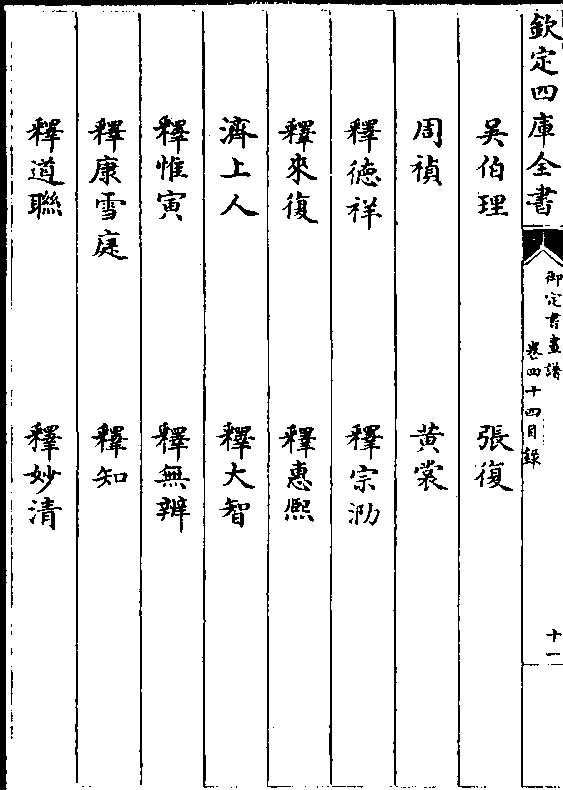 欽定四庫全書
御定書畫譜
卷四十四目錄
十一
吳伯理　張復
周禎　黃裳
釋德祥　釋宗泐
釋來復　釋惠熙
濟上人　釋大智
釋惟寅　釋無辨
釋康雪庭　釋知
釋道聯　釋妙清